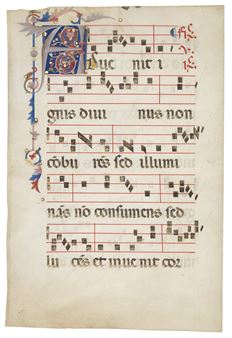 Adue nit i
gnis diui nus non
cōbu rēs sed illumi
nās nō consumens sed
lu cēs et inue nit cor